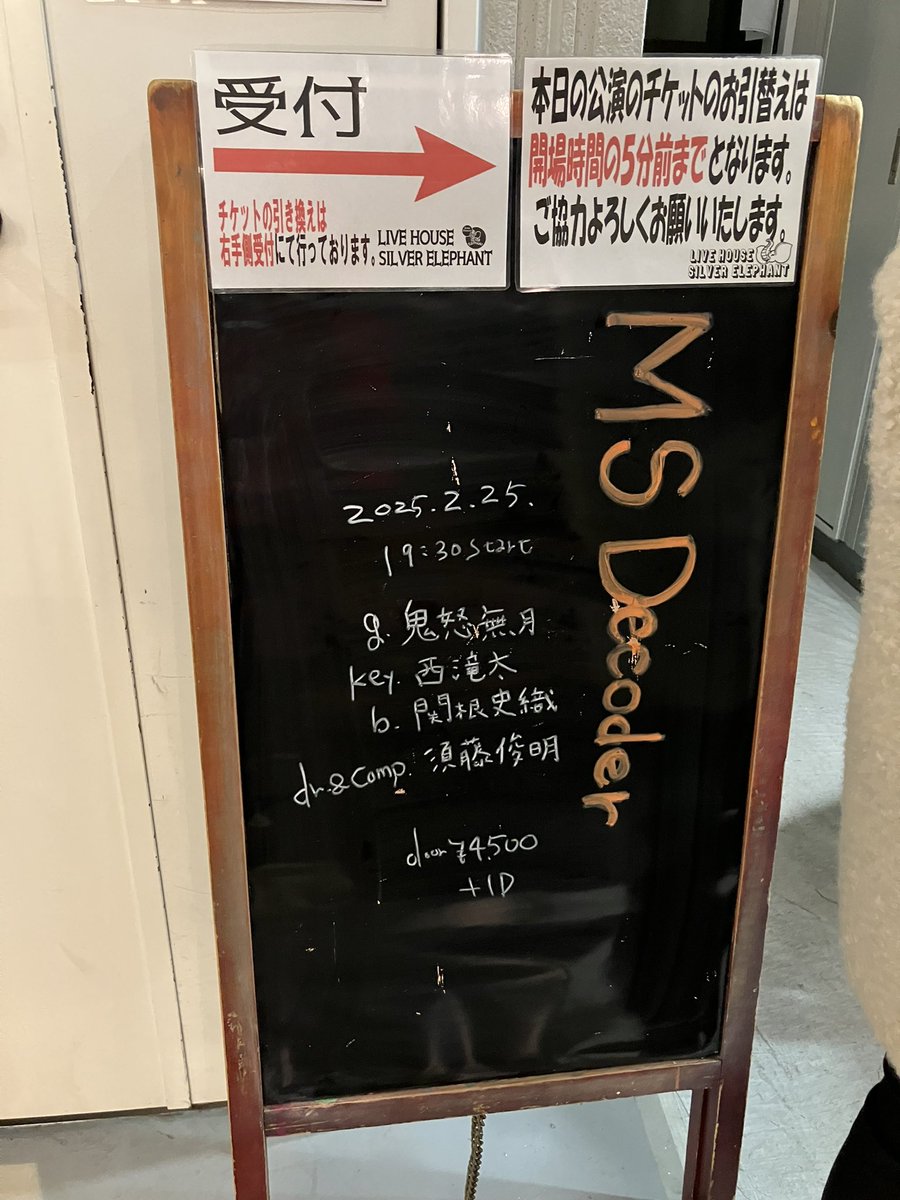 受付
チケットの引き換えは
右手側受付にて行っております。
LIVE HOUSE
SILVER ELEPHANT
本日の公演のチケットのお引替えは
開場時間の5分前までとなります。
ご協力よろしくお願いいたします。
LIVE HOUSE
SILVER ELEPHANT
MS Decoder
2025.2.25.
19:30 start
g. 鬼怒無月
key. 西滝太
b. 関根史織
dr.&comp. 須藤俊明
door ¥4.500
+1D